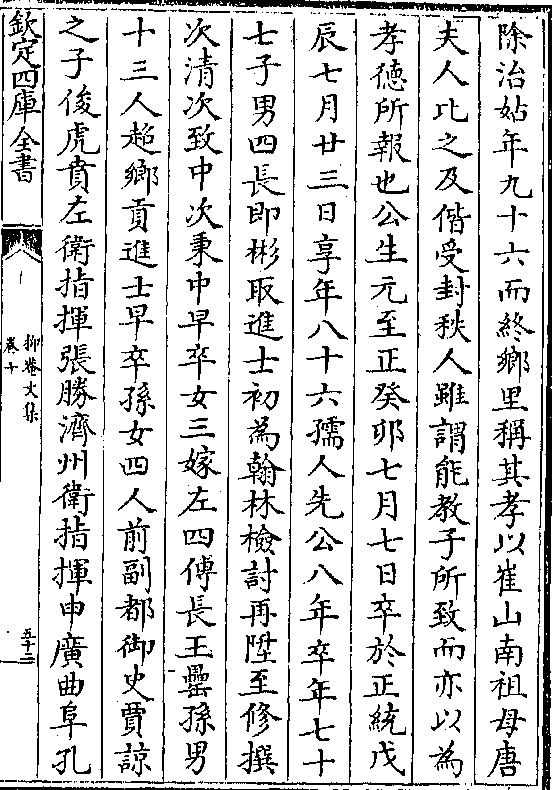 除治姑年九十六而終鄉里稱其孝以崔山南祖母唐
夫人比之及偕受封秩人雖謂能教子所致而亦以為
孝德所報也公生元至正癸卯七月七日卒於正統戊
辰七月廿三日享年八十六孺人先公八年卒年七十
七子男四長即彬取進士初為翰林檢討再陞至修撰
次清次致中次秉中早卒女三嫁左四傅長王罍孫男
十三人趨鄉貢進士早卒孫女四人前副都御史賈諒
之子俊虎賁左衛指揮張勝濟州衛指揮申廣曲阜孔
欽定四庫全書
抑菴文集
卷十
五十二